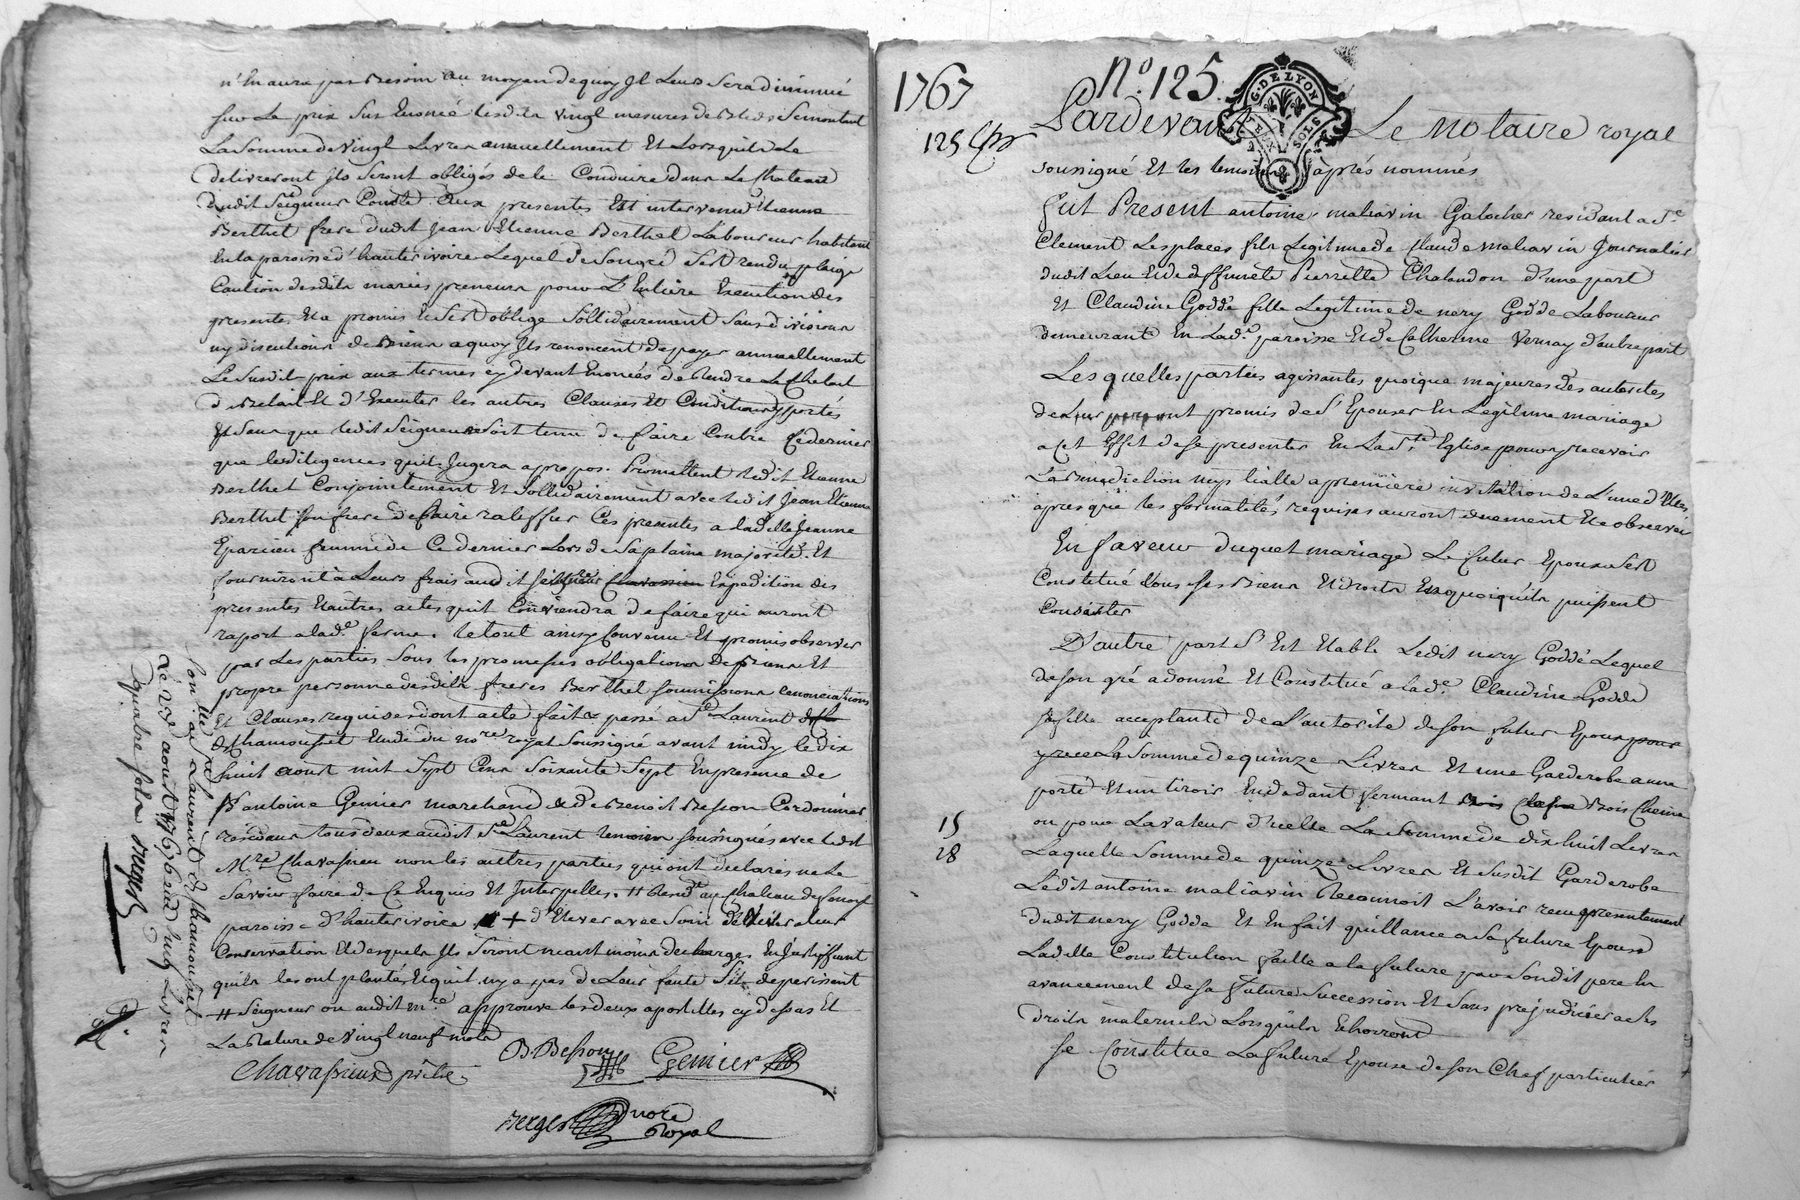 n'En aura pas Besoin au moyen de quoy Il Leurs Sera diminué
sur Le prix Sus Enoncé lesdits Vingt mesures de Bleds Se montant
La Somme de Vingt Livres annuellement Et Lorsquils Le
delivreront ils Seront obligés de le Conduire dans Le chateau
dudit Seigneur Comte Aux presentes Est intervenu Etienne
Berthet frere dudit Jean Etienne Berthet Laboureur habitant
En la paroisse d'hauterivoire Lequel de Son gré S'est rendu plaige
Caution desdits mariés preneurs pour L'Entiere Execution des
presentes Et a promis Et S'est obligé Sollidairement Sans division
ny discution de Biens a quoy Ils renoncent de payer annuellement
Le Susdit prix aux termes cy devant Enoncés de Rendre Le Chetail
de Betail Et d'Executer les autres Clauses Et Conditions y portés
Et Sans que ledit Seigneur Soit tenu de faire Contre Ce dernier
que les diligences quil Jugera a propos. Promettent ledit Etienne
Berthet Conjointement Et Sollidairement avec ledit Jean Etienne
Berthet Son frere de faire ratiffier Ces presentes a ladite Jeanne
Eparcieu femme de Ce dernier Lors de Sa plaine majorité. Et
fourniront à Leurs frais audit Seigneur Expedition des
presentes Et autres actes quil Conviendra de faire qui auront
raport a lad.e ferme. le tout ainsy Convenu Et promis observer
par Les parties Sous les promesses obligations de Biens Et
propre personne desdits freres Berthet Soumissions renonciations
Et Clauses requises dont acte fait & passé a St Laurent
de Chamousset Etude du nore royal Soussigné avant midy le dix
huit aoust mil Sept Cens Soixante Sept En presence de
Sr antoine Genier marchand & de Benoit Besson Cordonnier
résidans tous deux audit St Laurent temoins Soussignés avec ledit
Mre Chavassieu non les autres parties qui ont declaré ne le
Savoir faire de Ce Enquis Et Interpellés. # Rendt au chateau de
paroisse d'hauterivoire + d'Elever avec Soin de Veiller a leur
Conservation Et desquels Ils Seront neantmoins dechargés En Justiffiant
quils les ont plantés, Et quil n'y a pas de Leur faute S'ils deperissent
# Seigneur ou audit mre approuvé les deux apostilles cy dessus Et
La Rature de Vingt neuf mots
Chavassieux prêtre
B. Besson Genier
Berger nore
Royal
Con.lé a St Laurent de chamousset
Le 28 aoust 1767 Reçu huit Livres
quatre sols Berger
1767
N.o 125.
G. DE LYON
SOLS
125
Pardevant Le Notaire royal
soussigné Et les temoins àprés nommés
Fut Present antoine maliavin Galocher residant a St
Clement Les places fils Legitime de Claude maliavin Journalier
dudit Lieu Et de deffunete Pierrette Chalandon d'une part
Et Claudine Goddé fille Legitime de nery Goddé Laboureur
demeurants En Lad.e paroisse Et de Catherine Vernay d'autre part
Lesquelles parties agissantes quoique majeures des autorités
de Leur pere ont promis de S'Epouser En Legitime mariage
a cet Effet de se presenter En La Ste Eglise pour y recevoir
La Benediction nuptialle a premiere invitation de L'une d'Elles
àprés que les formalités requises auront duement Eté observées
En faveur duquel mariage Le futur Epoux S'est
Constitué tous ses Biens Et droits En quoi qu'ils puissent
Consister
D'autre part S'Est Etabli Ledit nery Goddé Lequel
de son gré a donné Et Constitué a lad.e Claudine Goddé
sa fille acceptante de L'autorité de son futur Epoux
La Somme de quinze Livres Et une Garderobe a une
porte Et un tiroir En dedant fermant Bois Chesne
ou pour La valeur d'icelle La Somme de dix huit Livres
15
18
Laquelle Somme de quinze Livres Et Susdit Garderobe
Ledit antoine maliavin Reconnoit L'avoir reçu presentement
dudit nery Goddé Et En fait quittance a Sa future Epouse
Ladite Constitution faitte a la future par Son dit pere En
avancement de sa future Succession Et Sans prejudicier a ses
droits maternels Lorsquils Echoiront
Se Constitue La future Epouse de son Chef particulier